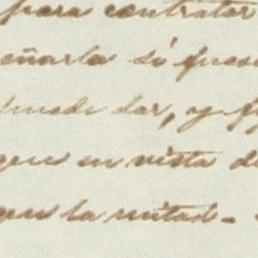 para contratar
eñarla si fuese
puede dar, y
gen en vista de
gen la mitad -